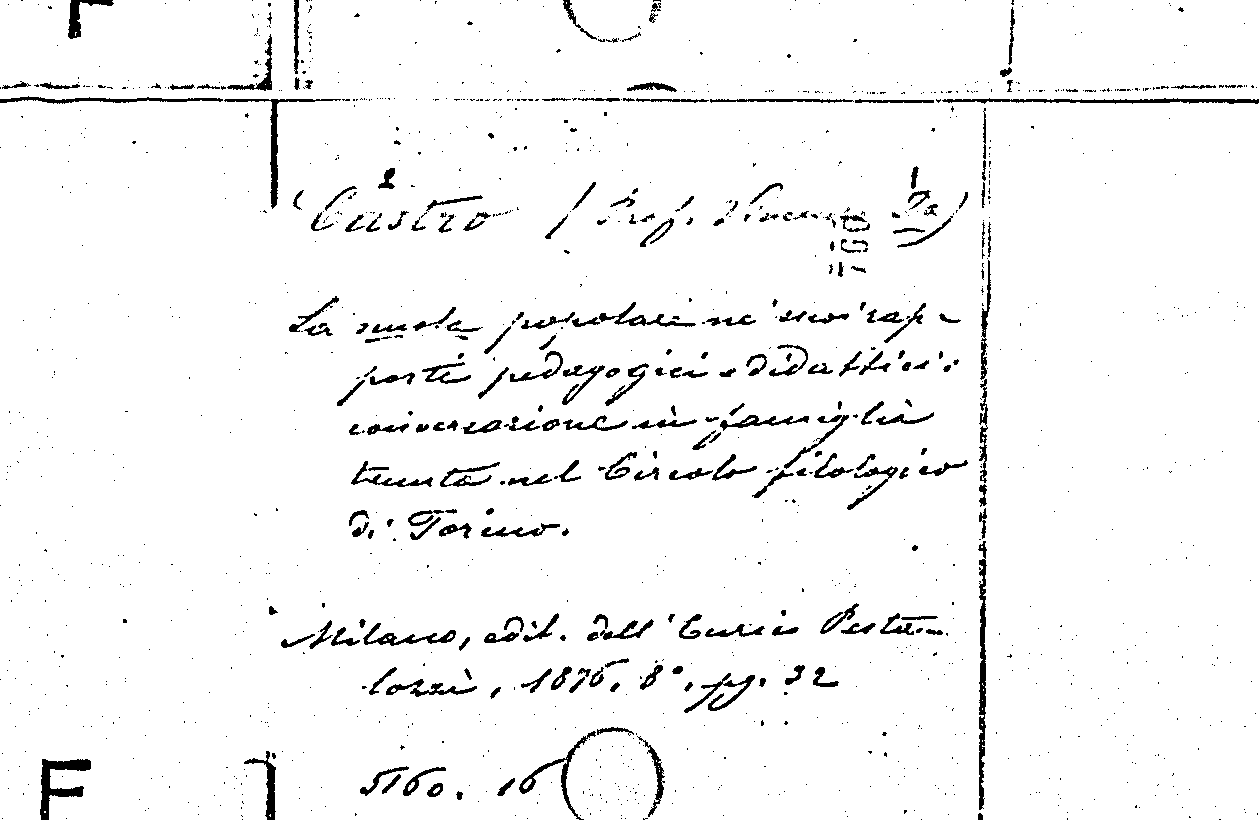 F
2 1
Castro (Prof. Vincenzo De)
La scuola popolare ne' suoi rap-
porti pedagogici e didattici:
conversazione in famiglia
tenuta nel Circolo filologico
di Torino.
Milano, edit. dell' Pesta-
lozzi, 1876, 8°, pg. 32
5160. 16
F